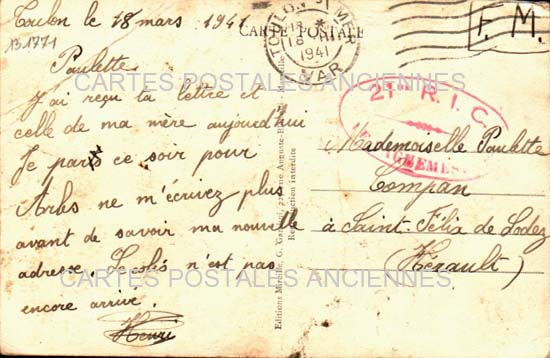 Toulon le 18 mars 1941
131771
Paulette
J'ai reçu ta lettre et
celle de ma mère aujourd'hui
Je pars ce soir pour
Arles ne m'écrivez plus
avant de savoir ma nouvelle
adresse. n'est pas
encore arrivé.
Henri
CARTE POSTALE
TOULON
18
1941
VAR
F. M.
21me R. I. C.
Mademoiselle Paulette
Compan
à Saint-Félix de Lodez
(Hérault)
Reproduction interdite
CARTES POSTALES ANCIENNES
CARTES POSTALES ANCIENNES